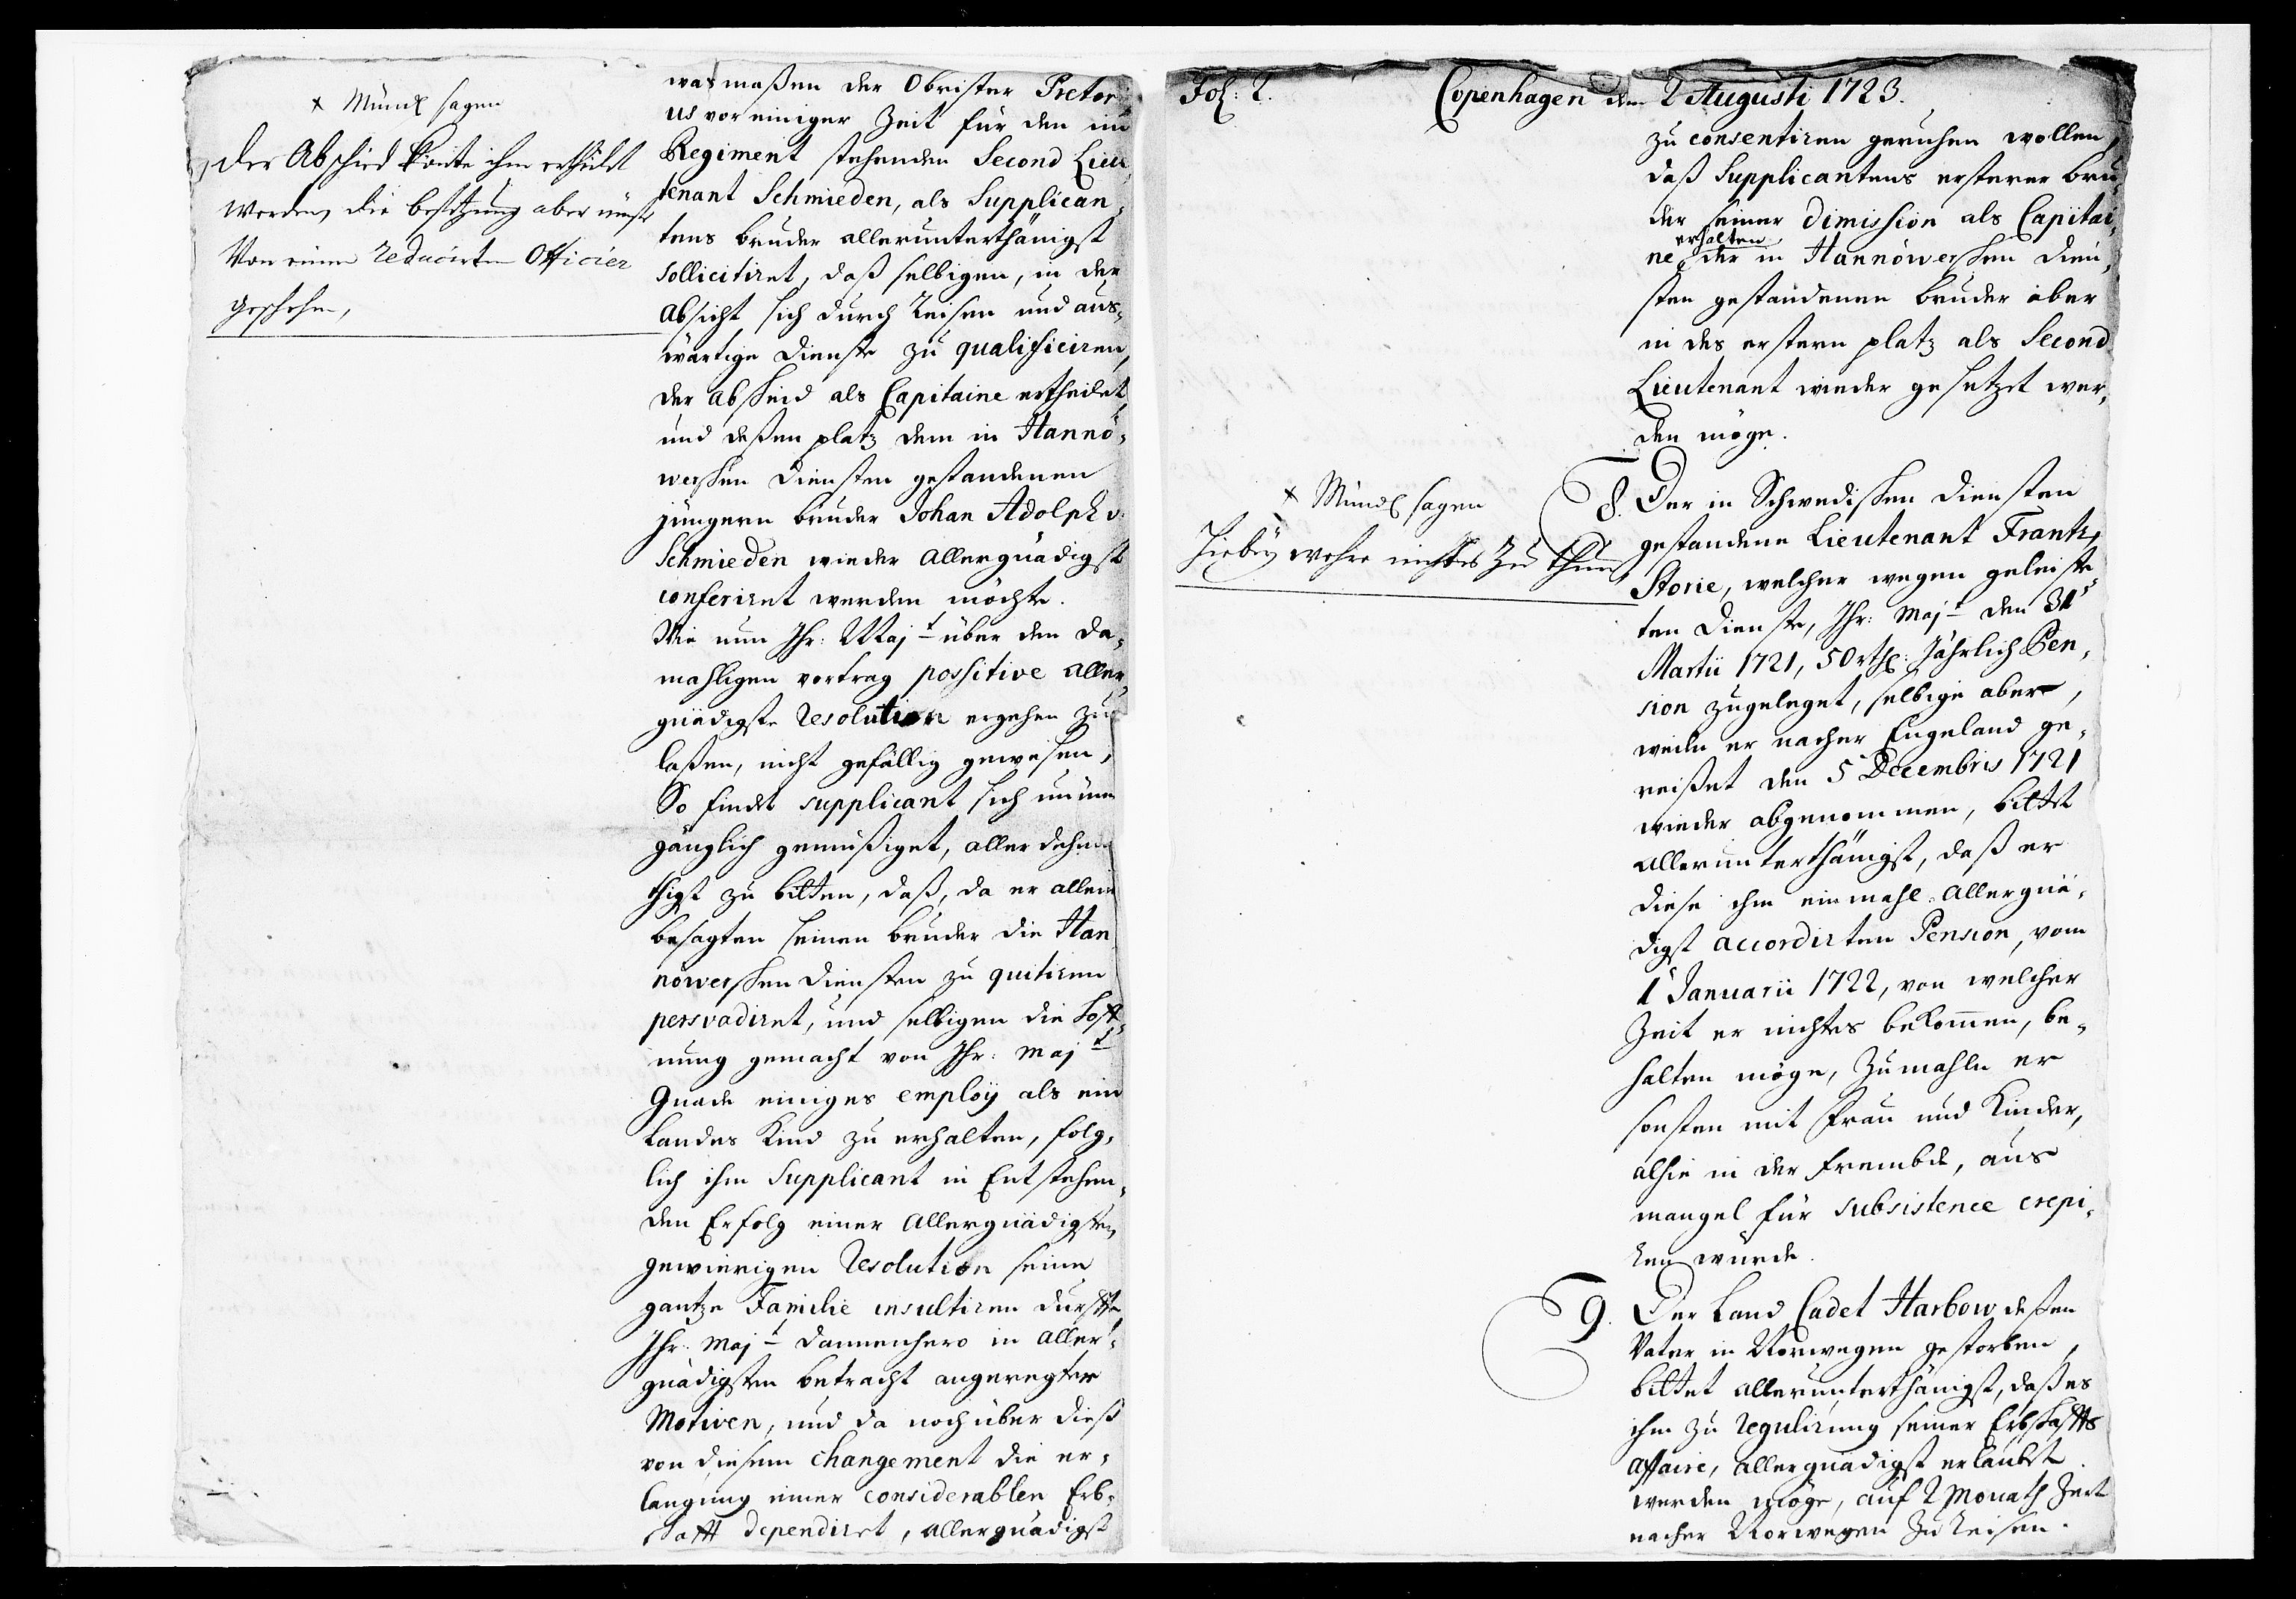 x Mündl sagen
der Abschied könte ihm ertheilet
werden, die besetzung aber müste
Von einem reducirten Officier
geschehen,
wasmaßen der Obrister Pretori
us vor einiger Zeit für den im
Regiment stehenden Second Lieu„
tenant Schmieden, als Supplican„
tens bruder allerunterthänigst
sollicitiret, daß selbigen, in der
absicht sich durch Reisen und aus„
wärtige Dienste zu qualificiren,
der abscheid als Capitaine ertheilet,
und deßen platz dem in Hannö„
werschen Diensten gestandenen
jüngern bruder Johan Adolph v:
Schmieden wieder Allergnädigst
conferiret werden möchte.
Wie nun Ihr: Majt über den da„
mahligen vortrag possitive aller„
gnädigste resolution ergehen zu
laßen, nicht gefällig gewesen,
So findet supplicant sich unüm
gänglich gemüßiget, aller dehmü
thigst zu bitten, daß, da er allein
besagten seinen bruder die Han
nöwerschen Diensten zu quitiren
persvadiret, und selbigen die Hoff„
nung gemacht von Ihr: Majt
Gnade einiges employ als ein
Landes Kind zu erhalten, folg„
lich ihm Supplicant in Entstehen„
den Erfolg einer Allergnädigsten
gewierigen Resolution seine
gantze Familie insultiren dürffte,
Ihr: Majt dannenhero in Aller„
gnädigsten betracht angeregter
Motiven, und da noch über dieß
von diesem changement die er„
langung einer considerablen Erb„
schafft dependiret, allergnädigst
Fol: 2. Copenhagen den 2 Augusti 1723.
zu consentiren geruhen wollen,
daß Supplicantens ersterer bru„
der seiner Dimission als Capitai„
erhalten
ne, der in Hannöwerschen Dien„
sten gestandenen bruder aber
in des erstern platz als Second
Lieutenant wieder gesetzet wer„
den möge.
x Mündl sagen
Hiebey wehre nichts zu thun
8. Der in Schwedischen Diensten
gestandene Lieutenant Frantz
Storie, welcher wegen geleiste
ten Dienste, Ihr: Majt den 31
Martii 1721, 50 rthl: Jährlich Pen„
sion zugeleget, selbige aber,
weiln er nacher Engeland ge„
reißet den 5 Decembris 1721
wieder abgenommen, bittet
allerunterthänigst, daß er
diese ihm einmahl allergnä„
digst accordirten Pension, vom
1 Januarii 1722, von welcher
Zeit er nichtes bekommen, be„
halten möge, Zumahln er
sonsten mit Frau und Kinder,
alhie in der frembde, aus
mangel für subsistence crepi„
ren würde.
9. Der Land Cadet Harbow deßen
Vater in Norwegen gestorben,
bittet allerunterthänigst, daß es
ihm zu regulirung seiner Erbschaffts
affaire, allergnädigst erlaubet
werden möge, auf 2 Monath Zeit
nacher Norwegen zu reisen.